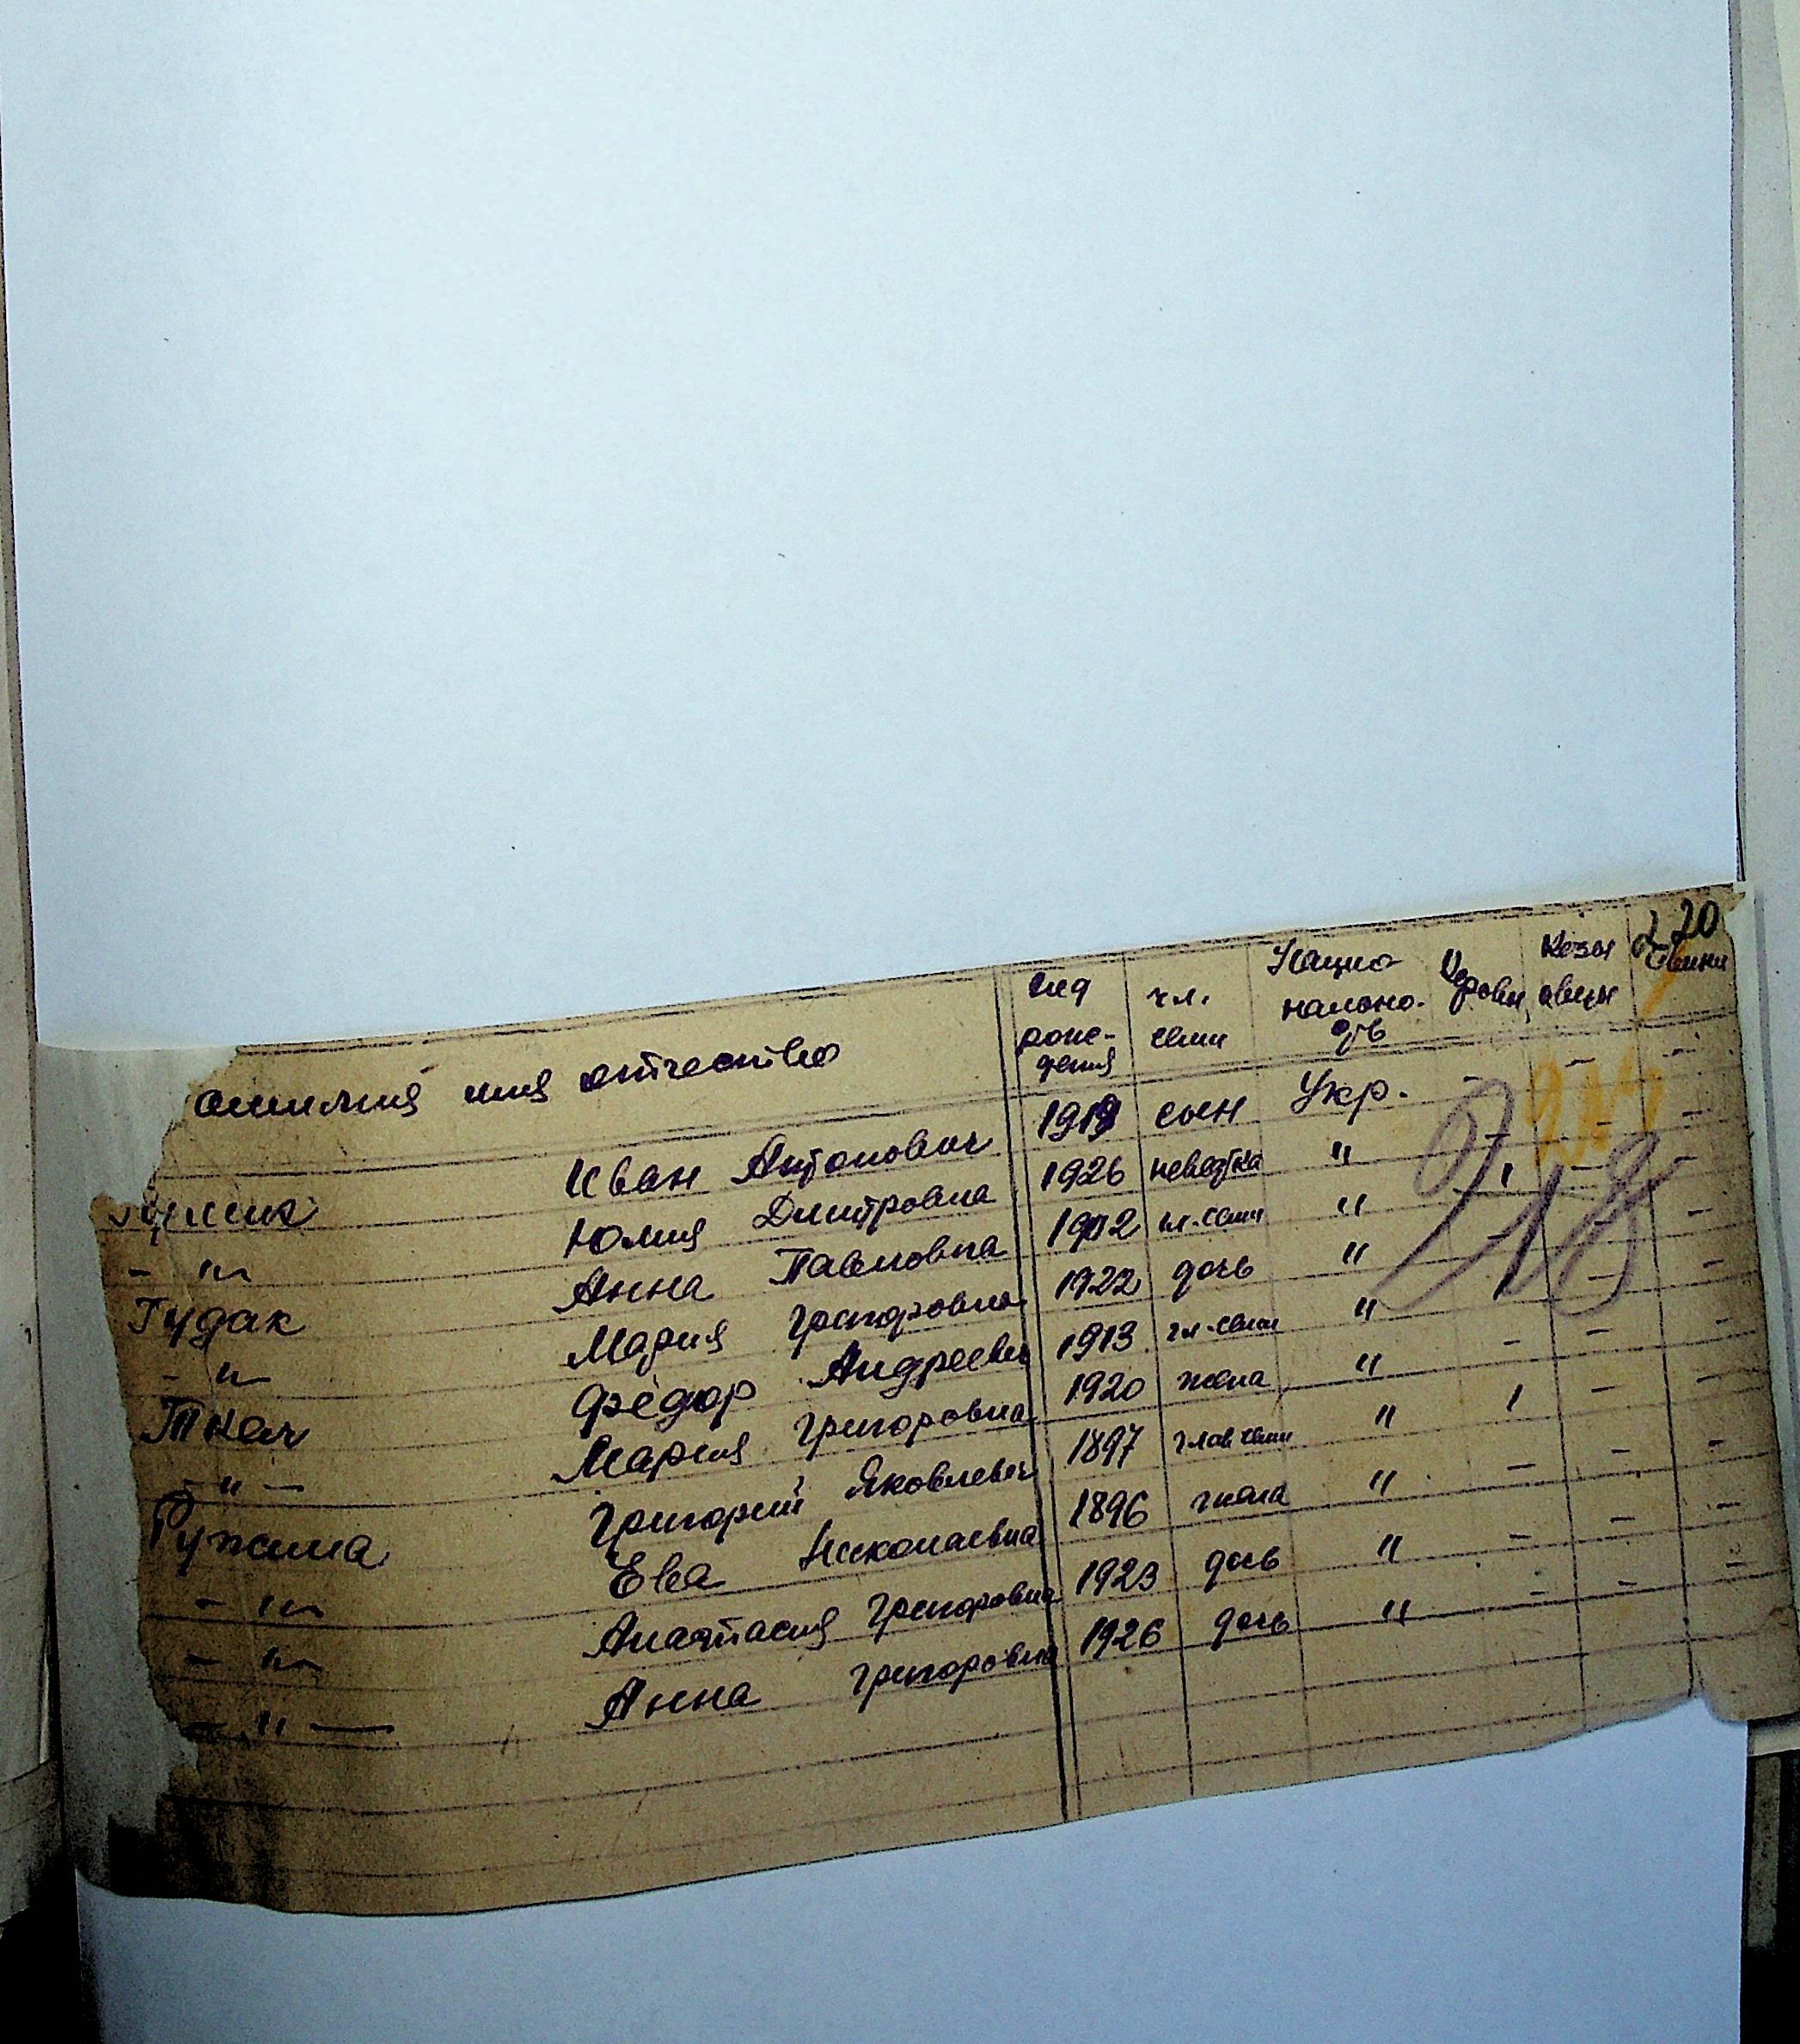 220
амилия имя отчество год рождения чл. семи Национальность Коровы Козы овцы Свини
Иван Антонович 1919 сын Укр. - - -
- " - Юлия Дмитровна 1926 невестка " 1 - -
Гудак Анна Павловна 1902 гл. семи " - - -
- " - Мария Григоровна 1922 дочь " 1 - -
Ткач Фёдор Андреевич 1913 гл. семи " - - -
- " - Мария Григоровна 1920 жена " - - -
Ружила Григорий Яковлевич 1897 глав семи " 1 - -
- " - Ева Николаевна 1896 жена " - - -
- " - Анастасия Григоровна 1923 дочь " - - -
- " - Анна Григоровна 1926 дочь " - - -
218